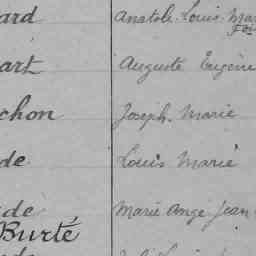 ard Anatole Louis Mar
art Auguste Eugène
chon Joseph Marie
de Louis Marie
de Marie Ange Jean
Burté